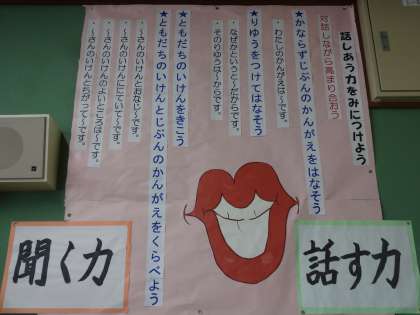 話しあう力をみにつけよう
対話しながら高まり合おう
★かならずじぶんのかんがえをはなそう
・わたしのかんがえは〜です。
★りゆうをつけてはなそう
・なぜかというと〜だからです。
・そのりゆうは〜からです。
★ともだちのいけんをきこう
★ともだちのいけんとじぶんのかんがえをくらべよう
・〜さんのいけんとおなじ〜です。
・〜さんのいけんににていて〜です。
・〜さんのいけんのよいところは〜です。
・〜さんのいけんとちがって〜です。
話す力
聞く力